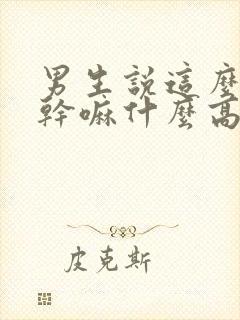 男生說這麼
幹嘛什麼高
皮克斯